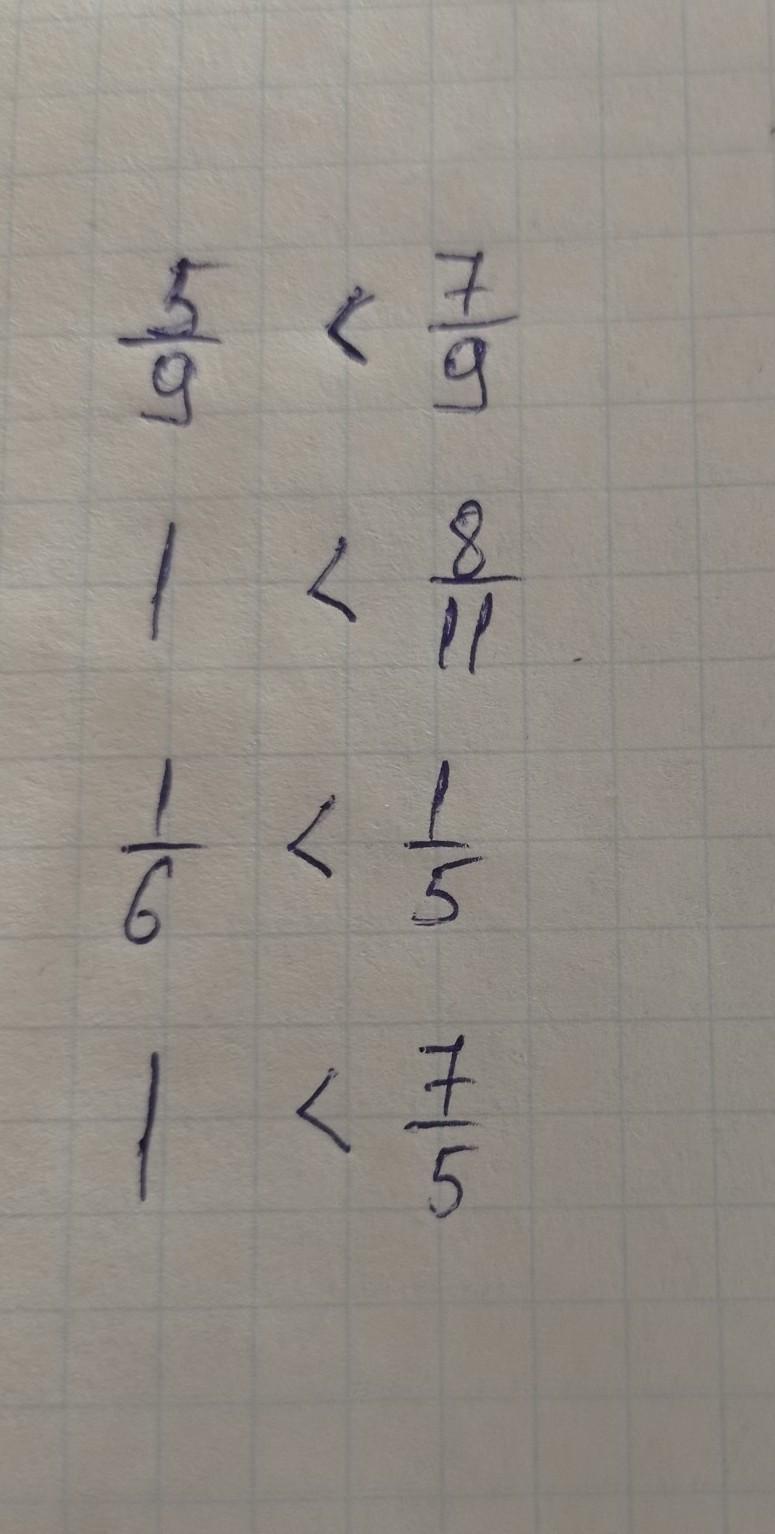 5/9 < 7/9
1 < 8/11
1/6 < 1/5
1 < 7/5